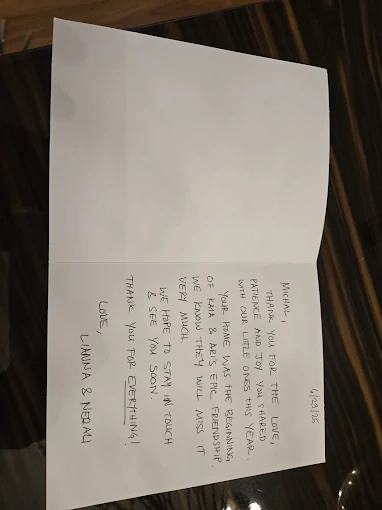 6/23/25
MICHAL,
THANK YOU FOR THE LOVE,
PATIENCE AND JOY YOU SHARED
WITH OUR LITTLE ONES THIS YEAR.
YOUR HOME WAS THE BEGINNING
OF KAIA & ARI'S EPIC FRIENDSHIP.
WE KNOW THEY WILL MISS IT
VERY MUCH
WE HOPE TO STAY IN TOUCH
& SEE YOU SOON.
THANK YOU FOR EVERYTHING!
LOVE,
LIANNA &